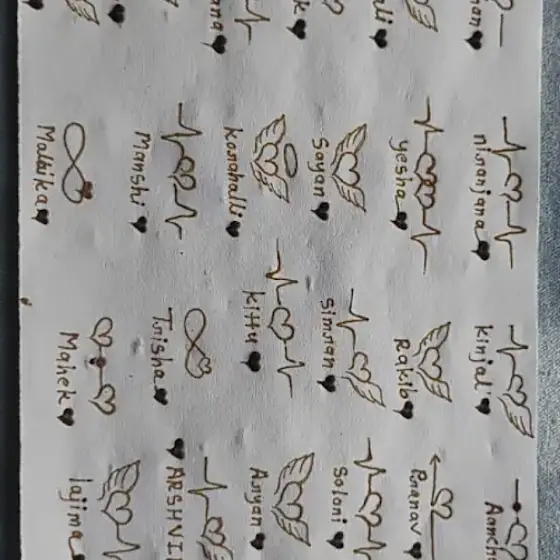 niranjana
yesha
Sayan
konahalli
Manshi
Malbika
kinjal
Rakib
simran
kittu
Trisha
Mahek
Pranav
Saloni
Aryan
ARSHVI
lajima